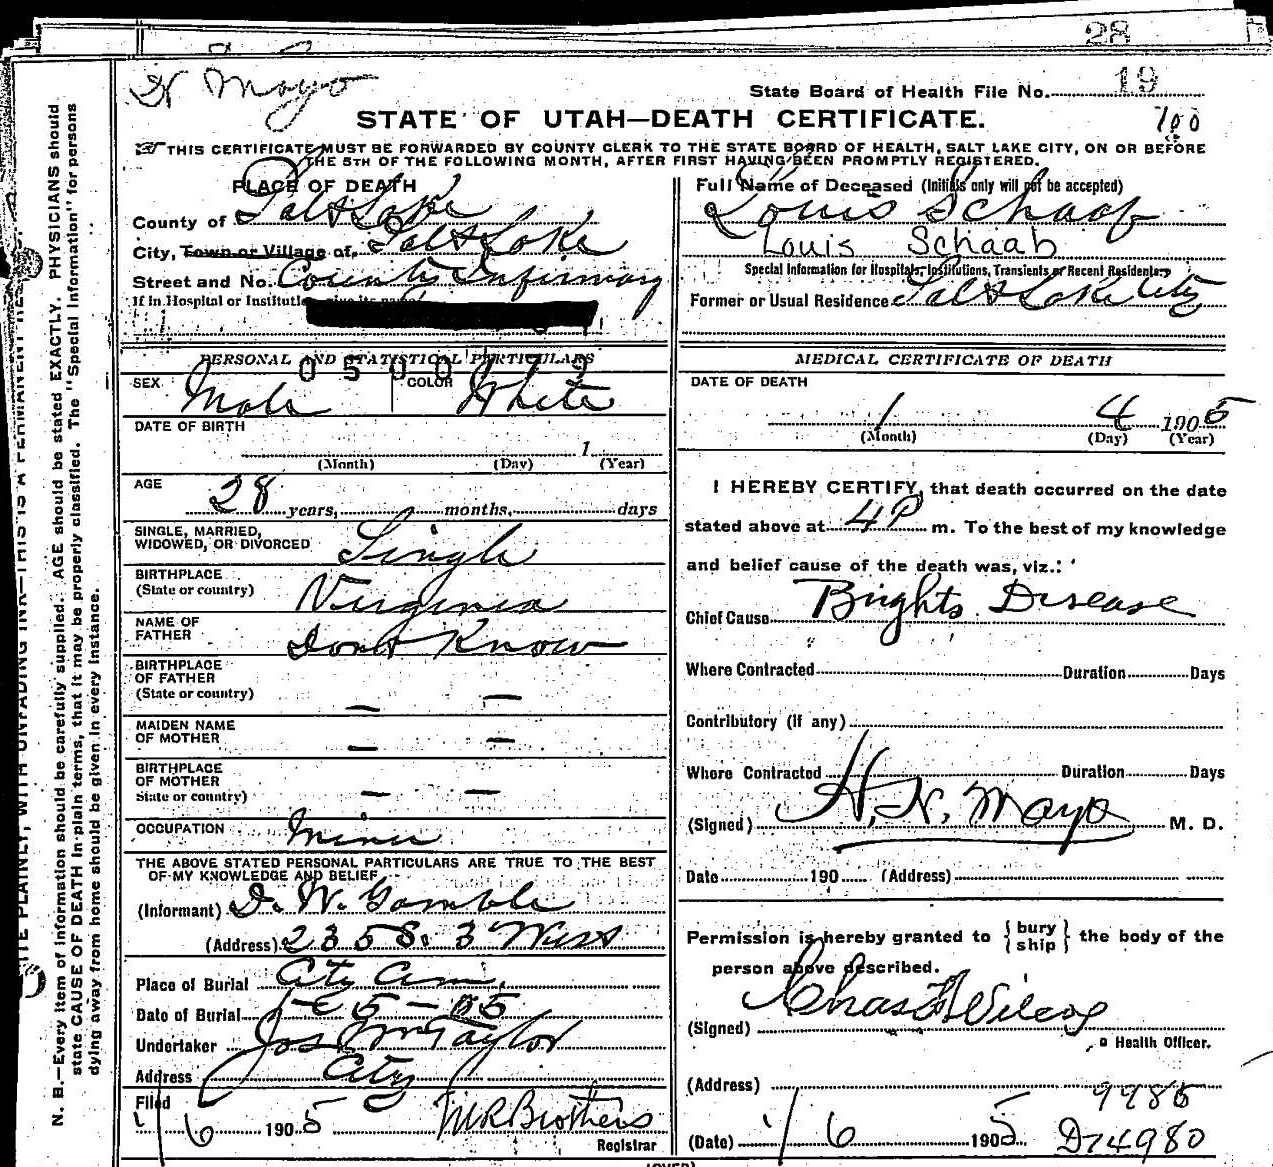 28
Dr Mayo
State Board of Health File No. 19
STATE OF UTAH—DEATH CERTIFICATE.
700
THIS CERTIFICATE MUST BE FORWARDED BY COUNTY CLERK TO THE STATE BOARD OF HEALTH, SALT LAKE CITY, ON OR BEFORE
THE 5TH OF THE FOLLOWING MONTH, AFTER FIRST HAVING BEEN PROMPTLY REGISTERED.
PLACE OF DEATH
County of Salt Lake
City, Town or Village of, Salt Lake
Street and No. County Infirmary
If in Hospital or Institution, give its name
Full Name of Deceased (Initials only will not be accepted)
Louis Schaap
Louis Schaab
Special Information for Hospitals, Institutions, Transients or Recent Residents.
Former or Usual Residence Salt Lake City
PERSONAL AND STATISTICAL PARTICULARS
SEX Male
COLOR White
DATE OF BIRTH
1
(Month) (Day) (Year)
AGE
28 years, months, days
SINGLE, MARRIED,
WIDOWED, OR DIVORCED Single
BIRTHPLACE
(State or country) Virginia
NAME OF
FATHER Dont Know
BIRTHPLACE
OF FATHER
(State or country) — —
MAIDEN NAME
OF MOTHER — —
BIRTHPLACE
OF MOTHER
State or country) — —
OCCUPATION Miner
THE ABOVE STATED PERSONAL PARTICULARS ARE TRUE TO THE BEST
OF MY KNOWLEDGE AND BELIEF
(Informant) D. W. Gamble
(Address) 235 S. 3 West
Place of Burial City Cem.
Date of Burial 1-5-05
Undertaker Jos Wm Taylor
Address City
Filed
1/6 1905 M R Brothers
Registrar
MEDICAL CERTIFICATE OF DEATH
DATE OF DEATH
1 4 1905
(Month) (Day) (Year)
I HEREBY CERTIFY, that death occurred on the date
stated above at 4P m. To the best of my knowledge
and belief cause of the death was, viz.:
Chief Cause Brights Disease
Where Contracted Duration Days
Contributory (if any)
Where Contracted Duration Days
(Signed) H. N. Mayo M. D.
Date 190 (Address)
Permission is hereby granted to {bury ship} the body of the
person above described.
(Signed) Chas F Wilcox
Health Officer.
(Address)
9986
(Date) 1/6 1905 D74980
(OVER)
N. B.—Every item of information should be carefully supplied. AGE should be stated EXACTLY. PHYSICIANS should
state CAUSE OF DEATH in plain terms, that it may be properly classified. The "Special Information" for persons
dying away from home should be given in every instance.